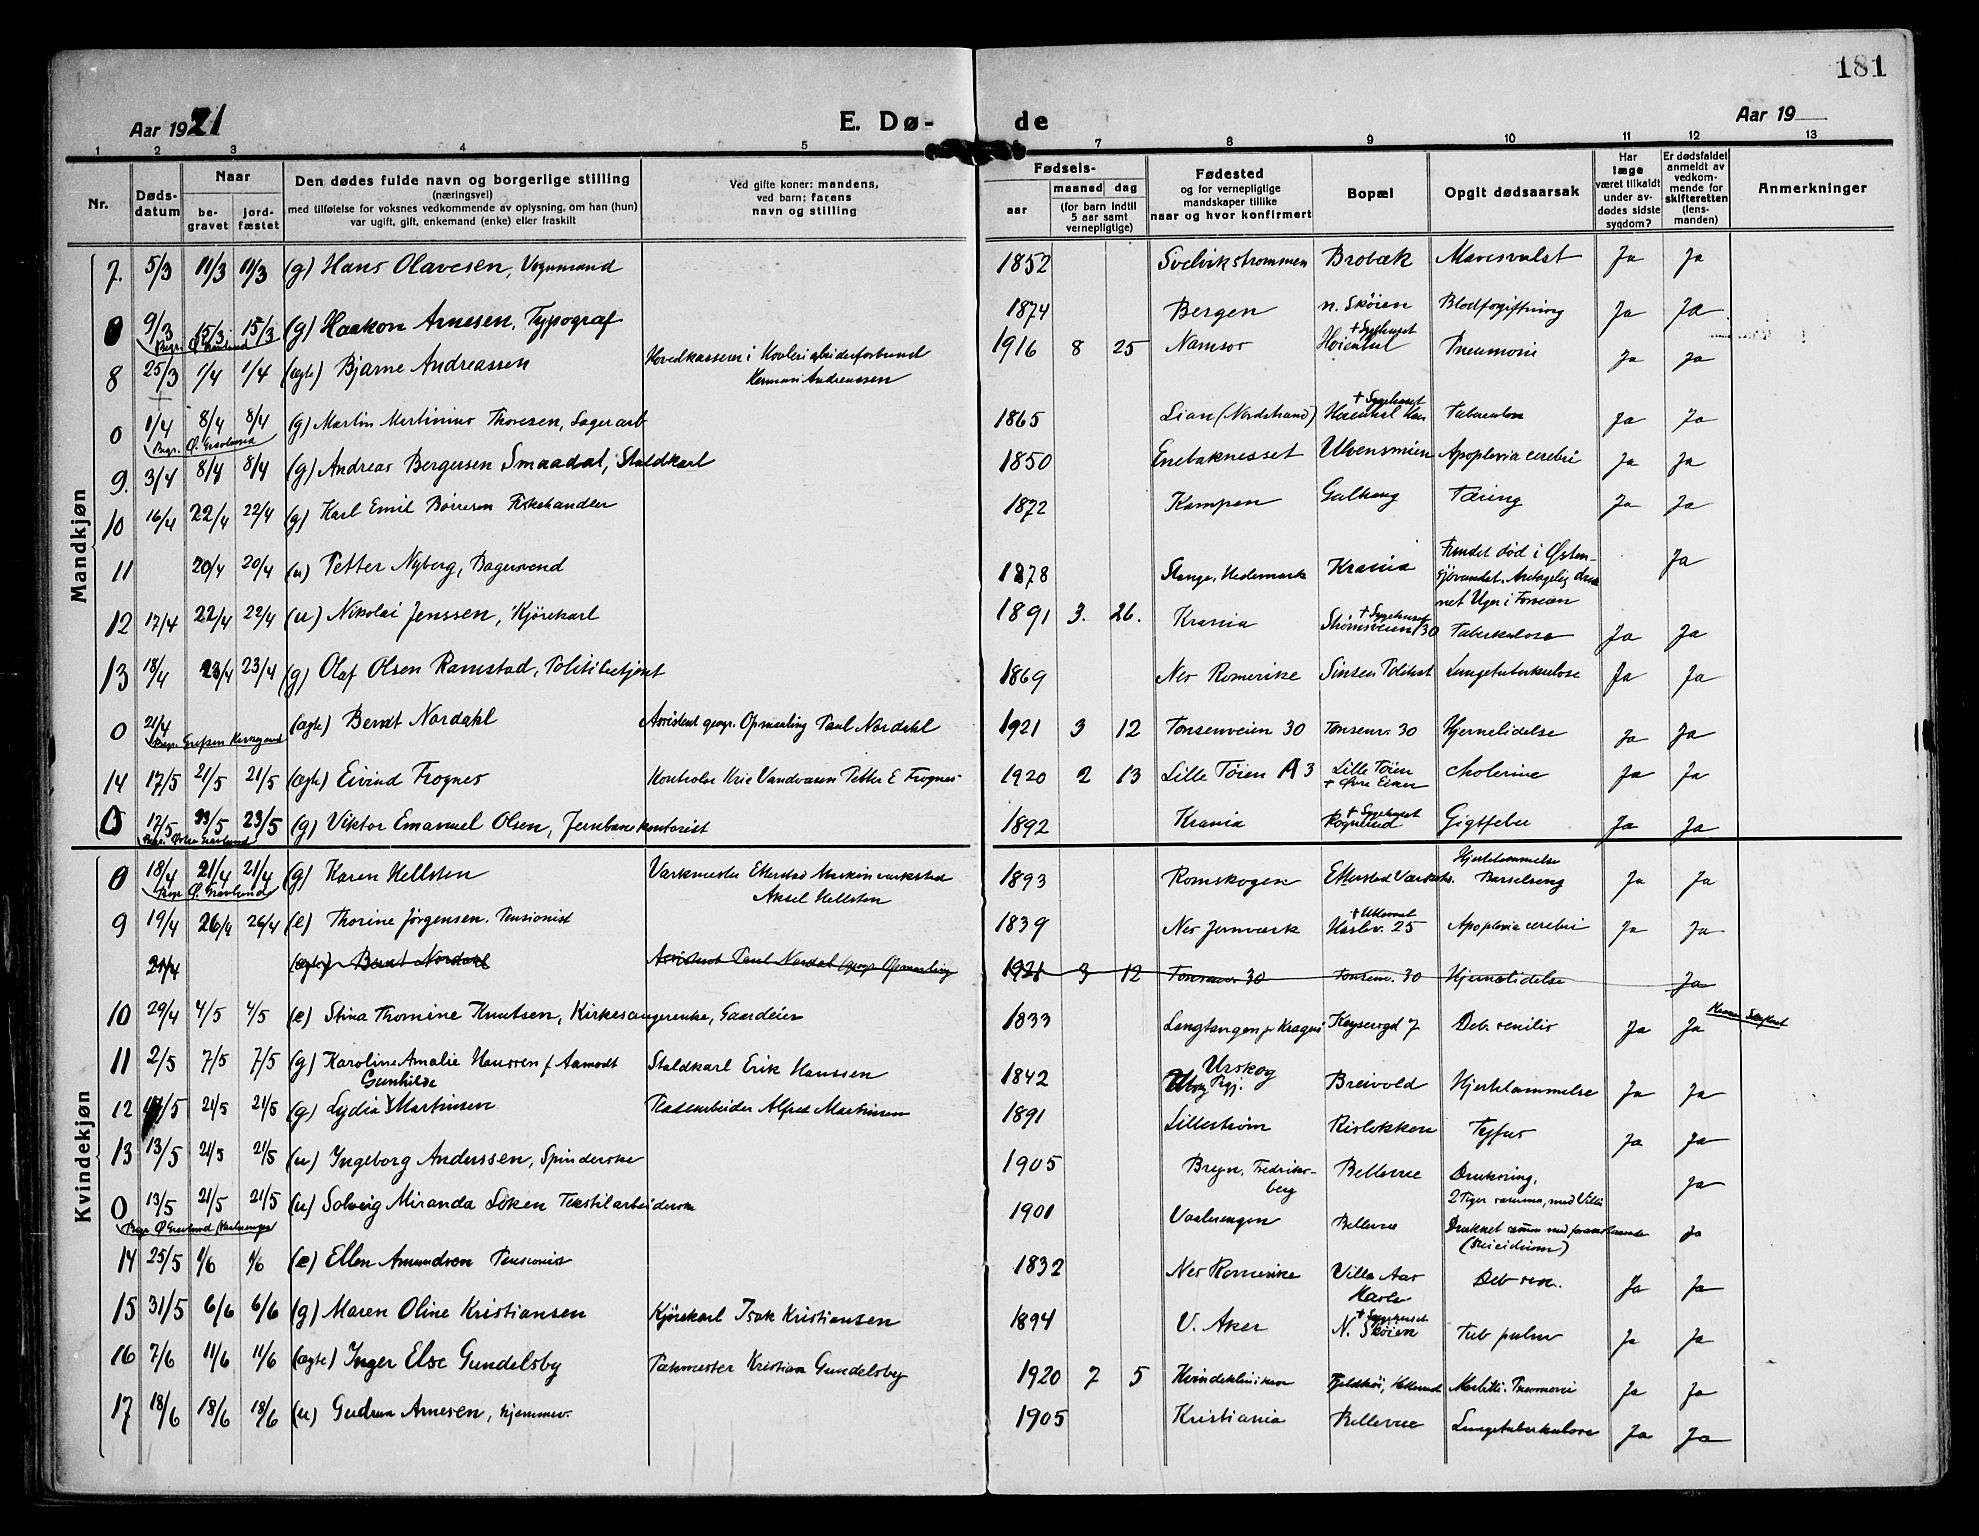 181
Aar 1921 E. Dø- de Aar 19
1 2 3 4 5 7 8 9 10 11 12 13
Nr. Døds-datum Naar begravet jordfæstet Den dødes fulde navn og borgerlige stilling (næringsvei) med tilføielse for voksnes vedkommende av oplysning, om han (hun) var ugift, gift, enkemand (enke) eller fraskilt Ved gifte koner: mandens, ved barn: farens navn og stilling Fødsels- aar maaned dag (for barn indtil 5 aar samt vernepligtige) Fødested og for vernepligtige mandskaper tillike naar og hvor konfirmert Bopæl Opgit dødsaarsak Har læge været tilkaldt under avdødes sidste sygdom? Er dødsfaldet anmeldt av vedkommende for skifteretten (lensmanden) Anmerkninger
Mandkjøn
7. 5/3 11/3 11/3 (g) Hans Olavesen, Vognmand 1852 Svelvikstrømmen Brobæk Mavesvulst Ja Ja
0 9/3 15/3 15/3 (g) Haakon Arnesen, Typograf 1874 Bergen n. Skøien Blodforgiftning Ja Ja
Begr. Ø. Gravlund
8 25/3 1/4 1/4 (ægte) Bjarne Andreassen Hovedkasserer i Hermann Andreassen 1916 8 25 Namsos + Sygehuset Høienhal Pneumoni Ja Ja
0 1/4 8/4 8/4 (g) Martin Martinius Thoresen, Lagerarb 1865 Lian (Nordstrand) + Sygehuset Høienhal Tuberkulose Ja Ja
Begr. Ø. Gravlund
9. 3/4 8/4 8/4 (g) Andreas Bergersen Smaadal, Staldkarl 1850 Enebaknesset Ulvensveien Apoplexia cerebri Ja Ja
10 16/4 22/4 22/4 (g) Karl Emil Børresen Fiskehandler 1872 Kampen Gulhaug Tæring Ja Ja
11 20/4 20/4 (u) Petter Nyberg, Bagersvend 1878 Stange, Hedemark Krania Fundet død i Østensjøvandet. Antagelig druknet Uger i Forveien Ja
12 17/4 22/4 22/4 (u) Nikolai Jenssen, Kjørekarl 1891 3. 26. Krania + Sygehuset Strømsveien 130 Tuberkulose Ja Ja
13 18/4 23/4 23/4 (g) Olaf Olsen Ramstad, Politibetjent 1869 Nes Romerike Sinsen Lungetuberkulose Ja Ja
0 21/4 (ægte) Berndt Nordahl Assistent geogr. Opmaaling Paul Nordahl 1921 3 12 Tonsenveien 30 Tonsenv. 30 Hjernelidelse Ja Ja
Begr. Grefsen Kirkegaard
14 17/5 21/5 21/5 (ægte) Eivind Frognes Kontrolør Kria Vandvæsen Petter E Frognes 1920 2 13 Lille Tøien A 3 Lille Tøien + Øvre Eiker Cholerine Ja Ja
0 17/5 23/5 23/5 (g) Viktor Emanuel Olsen, Jernbanekontorist 1892 Krania + Sygehuset Rognerud Gigtfeber Ja Ja
Begr. Østre Gravlund
Kvindekjøn
0 18/4 21/4 21/4 (g) Karen Hellsten Værkmester Etterstad Maskinverksted Aksel Hellsten 1893 Rømskogen Etterstad Værksts. Hjertelammelse Barselseng Ja Ja
Begr. Ø. Gravlund
9 19/4 26/4 26/4 (e) Thorine Jørgensen. Pensionist 1839 Nes Jernværk + Ullevaal Haslev. 25 Apoplexia cerebri Ja Ja
21/4 (ægte) Bernt Nordahl Assistent Paul Nordal Geogr. Opmaaling 1921 3 12 Tonsenv. 30 Tonsenv. 30 Hjernelidelse Ja
10 29/4 4/5 4/5 (e) Stina Thomine Knutsen, Kirkesangerenke, Gaardeier 1833 Langtangen pr Kragerø Keysersgd 7 Deb. senilis Ja Ja
11 2/5 7/5 7/5 (g) Karoline Amalie Hanssen f Aamodt Staldkarl Erik Hanssen 1842 Urskog Breivold Hjertelammelse Ja Ja
12 17/5 21/5 21/5 (g) Lydia Gunhilde Martinsen Pladsarbeider Alfred Martinsen 1891 Lillestrøm Risløkken Tyfus Ja Ja
13 13/5 21/5 21/5 (u) Ingeborg Anderssen, Spinderske 1905 Bryn, Fredriksberg Bellevue Drukning, 2 Piger sammen, med Villie Ja
0 13/5 21/5 21/5 (u) Solveig Miranda Løken Tekstilarbeiderske 1901 Vaalerengen Bellevue Druknet sammen med foranstaaende (Suicidium) Ja
Begr Ø Gravlund
14 25/5 1/6 1/6 (e) Ellen Amundsen Pensionist 1832 Nes Romerike Villa Aas Hasle Deb sen. Ja Ja
15 31/5 6/6 6/6 (g) Maren Oline Kristiansen Kjørekarl Isak Kristiansen 1894 V. Aker + Sygehuset N. Skøien Tub pulm Ja Ja
16 7/6 11/6 11/6 (ægte) Inger Else Gundelsby Pakmester Kristian Gundelsby 1920 7 5 Kvindeklinikken Morbilli. Pneumoni Ja Ja
17 18/6 18/6 18/6 (u) Gudrun Arnesen, hjemmev. 1905 Kristiania Bellevue Lungetuberkulose Ja Ja